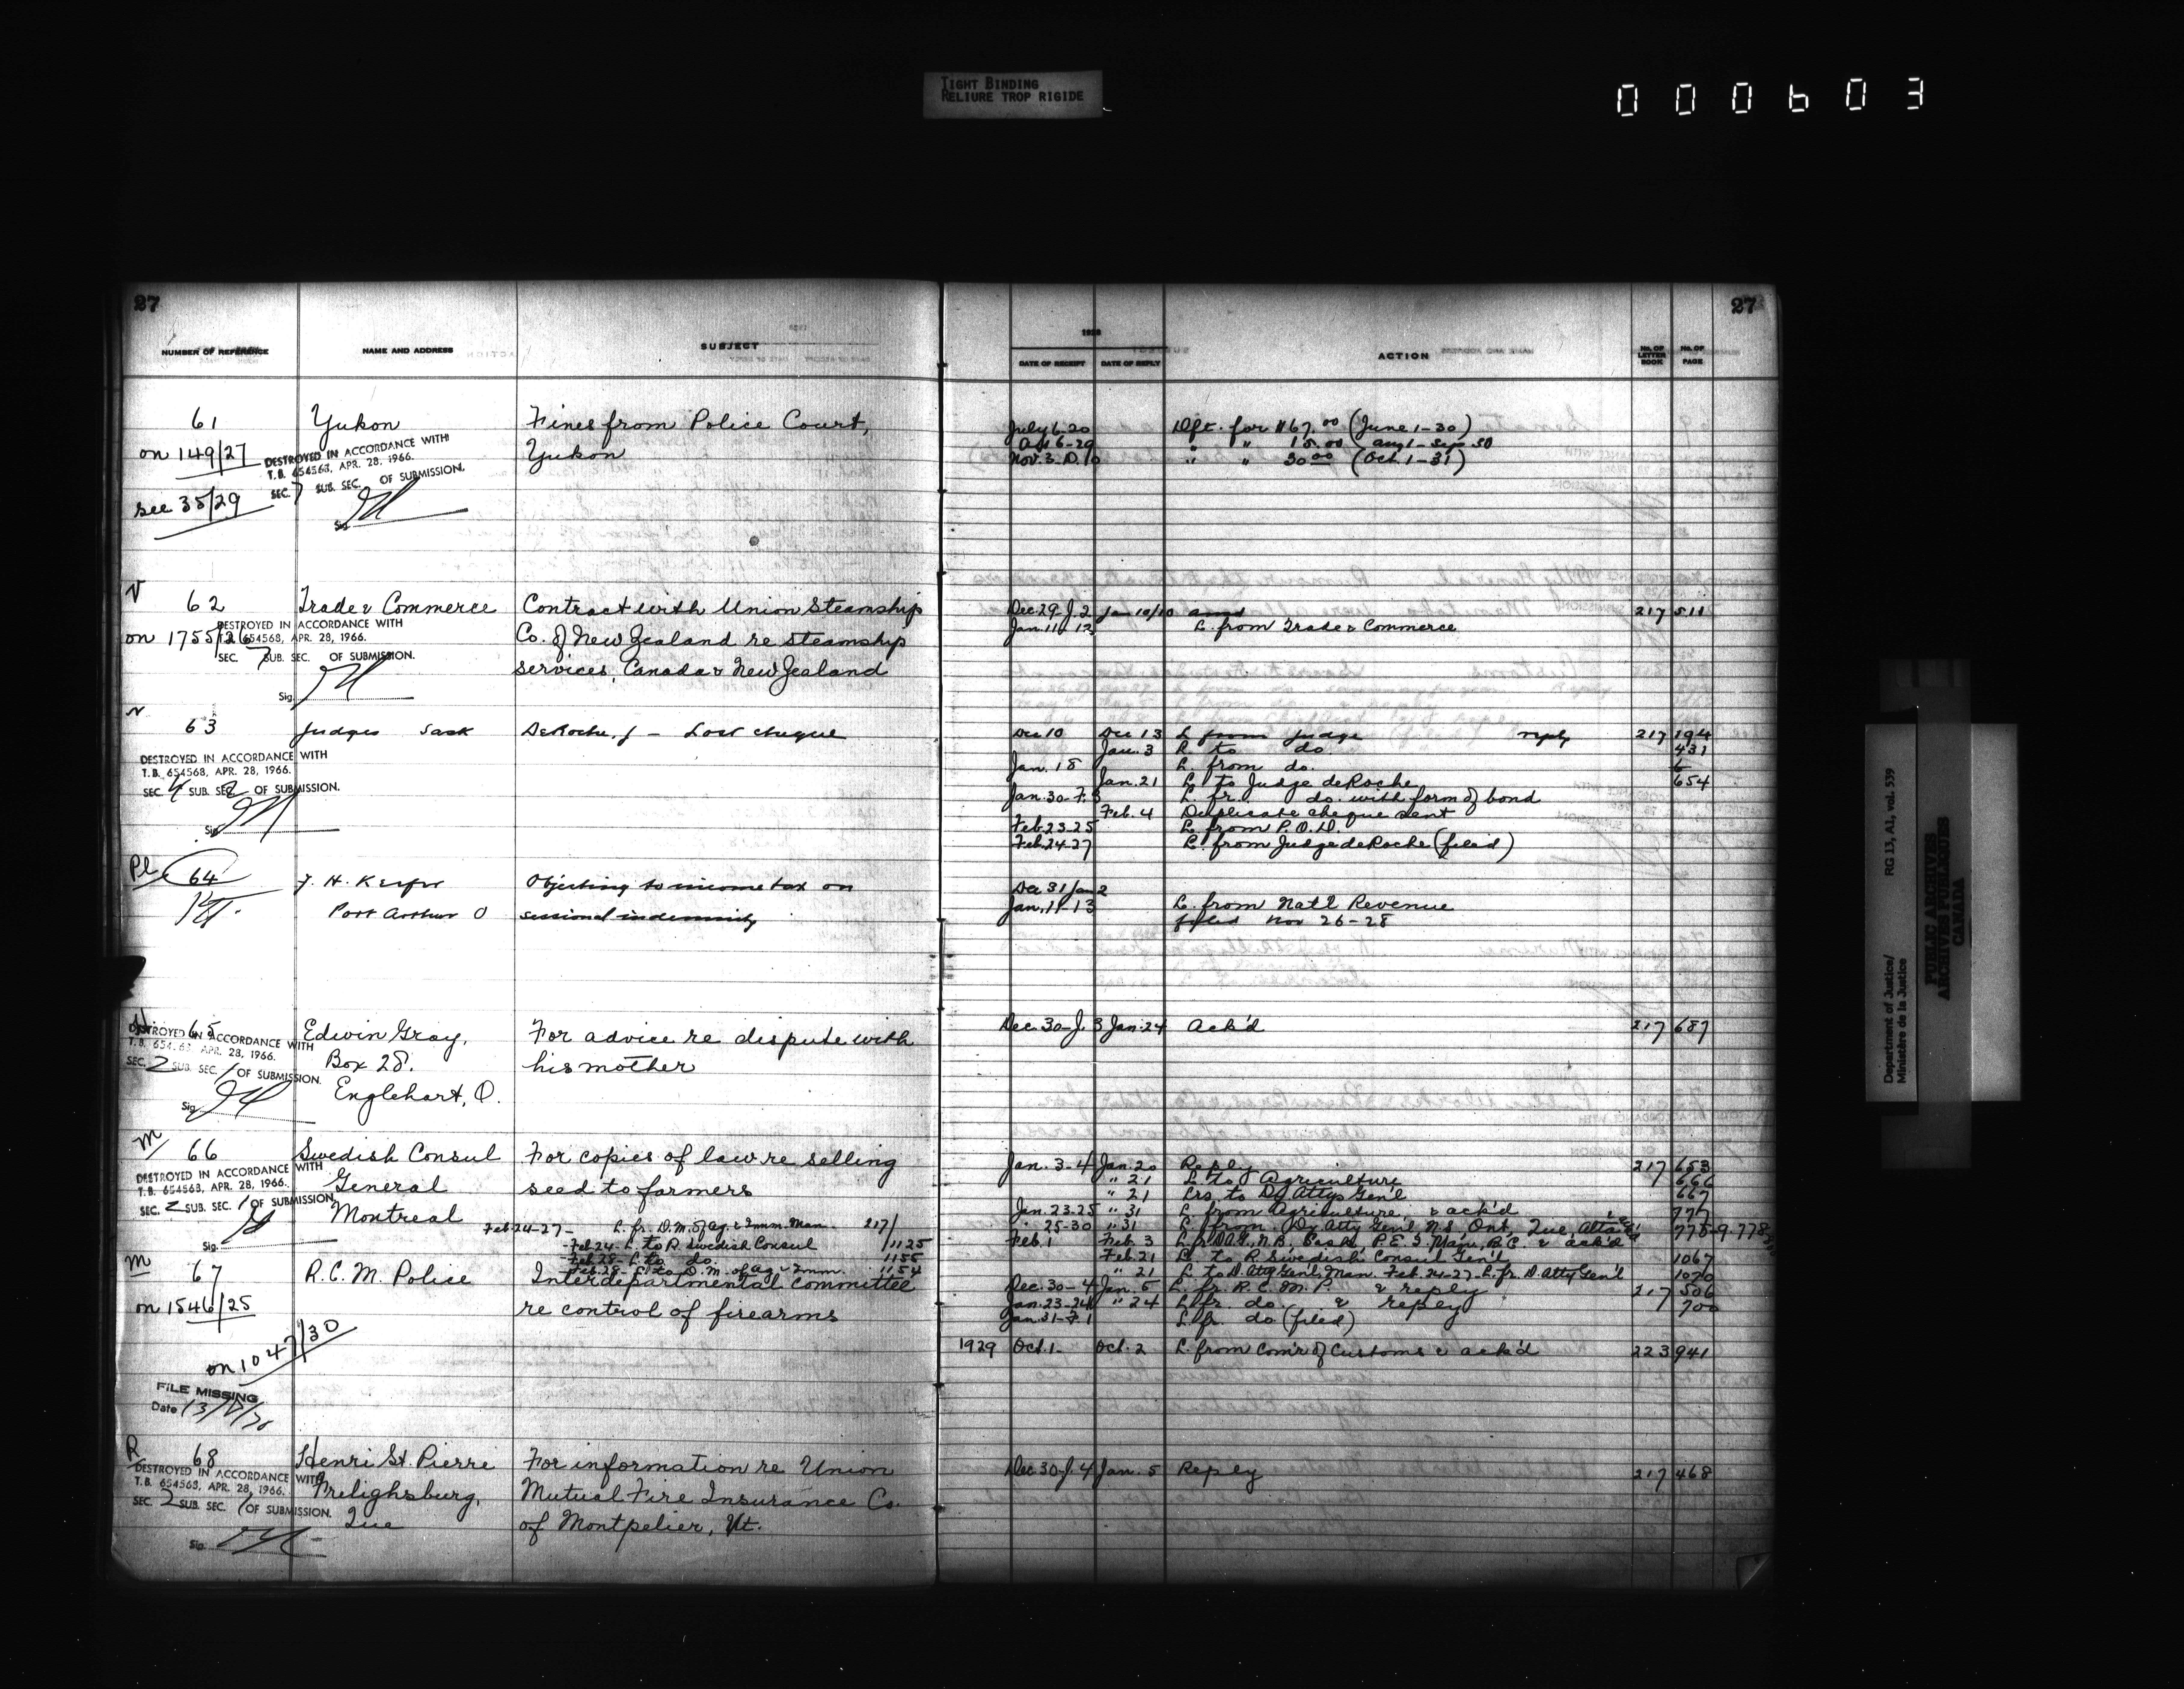 TIGHT BINDING
RELIURE TROP RIGIDE
000603
27
27
NUMBER OF REFERENCE NAME AND ADDRESS SUBJECT
1928
DATE OF RECEIPT DATE OF REPLY ACTION No. OF LETTER BOOK No. OF PAGE
61 Yukon Fines from Police Court,
on 149/27 Yukon
DESTROYED IN ACCORDANCE WITH
T.B. 654568, APR. 28, 1966.
SEC. 7 SUB. SEC. OF SUBMISSION.
see 35/29
Sig.
July 6-20 Dft. for $167.00 (June 1-30)
" " 15.00 Aug 1 - Sep 30
Nov. 3-D. 10 " " 30.00 (Oct. 1-31)
62 Trade & Commerce Contract with Union Steamship
on 1755/26 Co. of New Zealand re steamship
services, Canada & New Zealand
DESTROYED IN ACCORDANCE WITH
T.B. 654568, APR. 28, 1966.
SEC. 7 SUB. SEC. OF SUBMISSION.
Sig.
Dec. 29-J. 2 Jan 10/10 217 511
Jan. 11-12 L. from Trade & Commerce
63 Judges Sask DeRoche, J - Lost cheque
DESTROYED IN ACCORDANCE WITH
T.B. 654568, APR. 28, 1966.
SEC. 4 SUB. SEC. 2 OF SUBMISSION.
Sig.
Dec 10 Dec 13 L from Judge reply 217 194
Jan. 3 L. to do. 431
Jan. 18 L. from do.
Jan. 21 L. to Judge deRoche 654
Jan. 30-F. 3 L. fr. do. with form of bond
Feb. 4 Duplicate cheque sent
Feb. 23-25 L. from P.O.D.
Feb. 24-27 L. from Judge deRoche (filed)
Pl 64 Objecting to income tax on
Port Arthur O sessional indemnity
Dec 31 Jan 2
Jan. 11-13 L. from Nat'l Revenue
filed Nov 26-28
65 Edwin Gray, For advice re dispute with
Box 28. his mother
Englehart, O.
DESTROYED IN ACCORDANCE WITH
T.B. 654568 APR. 28, 1966.
SEC. 2 SUB. SEC. 1 OF SUBMISSION.
Sig.
Dec. 30-J. 3 Jan. 24 Ack'd 217 687
M 66 Swedish Consul For copies of law re selling
General seed to farmers
Montreal
DESTROYED IN ACCORDANCE WITH
T.B. 654568, APR. 28, 1966.
SEC. 2 SUB. SEC. 1 OF SUBMISSION
Sig.
Feb 24-27- L. fr. D.M. of Ag. & Imm. Man. 217/
Feb. 24- L. to R. Swedish Consul 1125
Feb. 28- L. to do. 1155
Feb. 28- L. to D.M. of Ag. & Imm. 1154
Jan. 3-4 Jan. 20 Reply 217 653
" 21 L. to Agriculture 666
" 21 Lrs. to Dy Attys Gen'l 667
Jan. 23-25 " 31 L. from Agriculture, & ack'd 777
" 25-30 " 31 L. from Dy Atty Gen'l N.S, Ont, Que, Alta 775-9-778
Feb. 1 Feb. 3 L. fr D.A.G., N.B. Sask, P.E.I. Man, B.C. & ack'd
Feb. 21 L. to R. Swedish Consul Gen'l 1067
" 21 L. to D. Atty Gen'l, Man. Feb. 24-27-L. fr. D. Atty Gen'l 1070
M 67 R.C.M. Police Interdepartmental committee
on 1546/25 re control of firearms
on 1047/30
FILE MISSING
Date
Dec. 30-4 Jan. 5 L. fr. R.C.M.P. & reply 217 506
Jan. 23-24 " 24 L. fr. do. & reply 700
Jan. 31-F. 1 L. fr. do (filed)
1929 Oct. 1- Oct. 2 L. from Com'r of Customs & ack'd 223 941
R 68 Henri St. Pierre For information re Union
Frelighsburg, Mutual Fire Insurance Co.
Que of Montpelier, Vt.
DESTROYED IN ACCORDANCE WITH
T.B. 654568, APR. 28, 1966.
SEC. 2 SUB. SEC. 1 OF SUBMISSION.
Sig.
Dec 30-J. 4 Jan. 5 Reply 217 468
Department of Justice/
Ministère de la Justice
RG 13, A1, vol. 539
PUBLIC ARCHIVES
ARCHIVES PUBLIQUES
CANADA